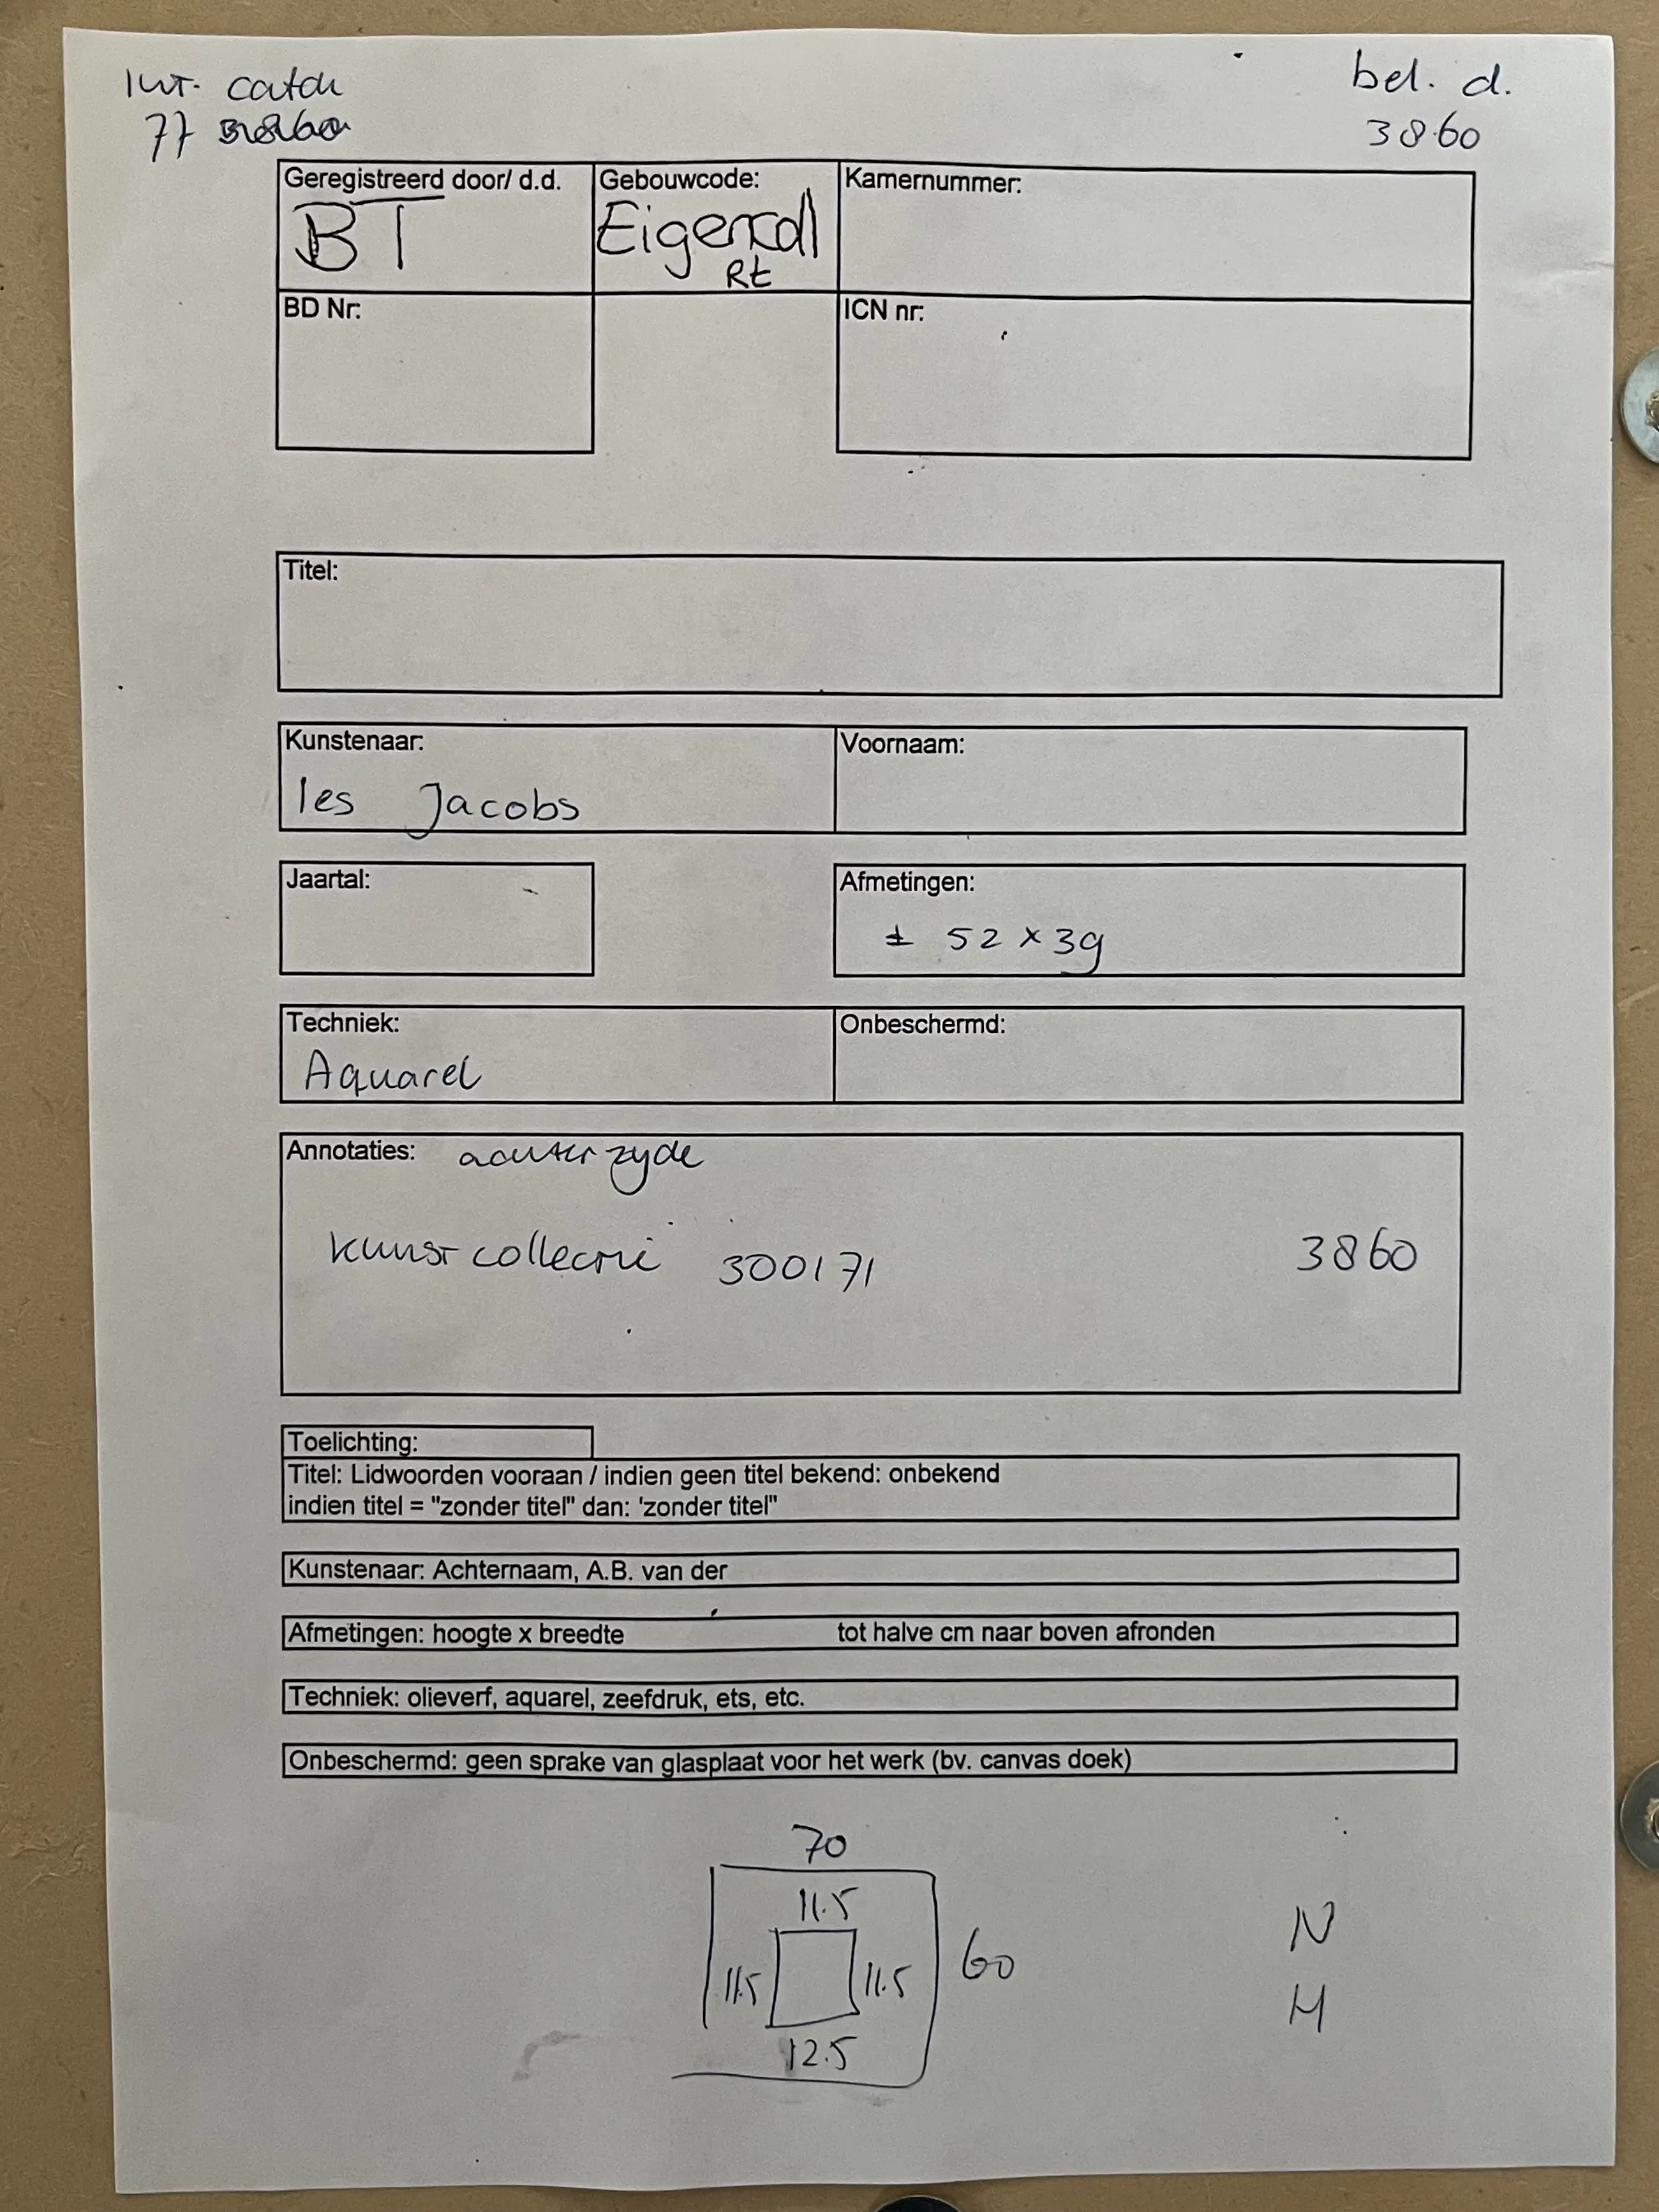 bel. d.
77
3860
Geregistreerd door/ d.d. Gebouwcode: Kamernummer:
BT Eigencoll
Rt
BD Nr: ICN nr:
Titel:
Kunstenaar: Voornaam:
Ies Jacobs
Jaartal: Afmetingen:
± 52 x 39
Techniek: Onbeschermd:
Aquarel
Annotaties: achterzyde
kunstcollectie 300171 3860
Toelichting:
Titel: Lidwoorden vooraan / indien geen titel bekend: onbekend
indien titel = "zonder titel" dan: 'zonder titel"
Kunstenaar: Achternaam, A.B. van der
Afmetingen: hoogte x breedte tot halve cm naar boven afronden
Techniek: olieverf, aquarel, zeefdruk, ets, etc.
Onbeschermd: geen sprake van glasplaat voor het werk (bv. canvas doek)
70
11.5
11.5 11.5 60
12.5
N
H